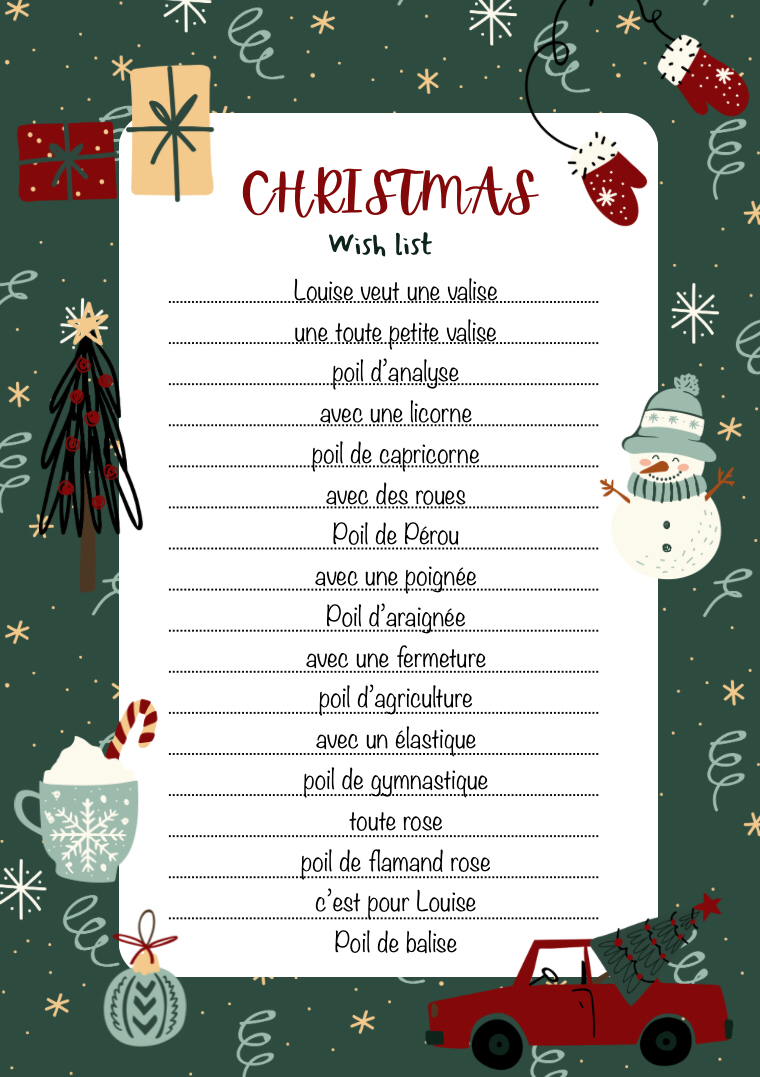 CHRISTMAS
Wish list
Louise veut une valise
une toute petite valise
poil d'analyse
avec une licorne
poil de capricorne
avec des roues
Poil de Pérou
avec une poignée
Poil d'araignée
avec une fermeture
poil d'agriculture
avec un élastique
poil de gymnastique
toute rose
poil de flamand rose
c'est pour Louise
Poil de balise